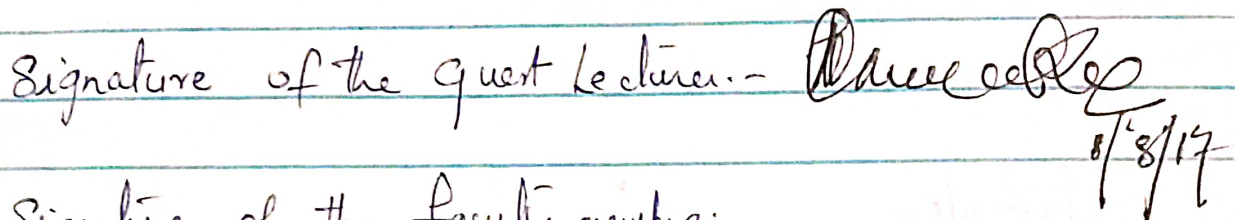 Signature of the guest Lecturer:-
8/8/17
Signature of the faculty member: